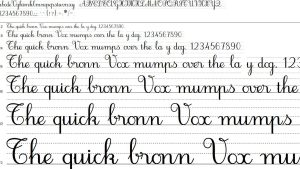 1234567890
The quick bronn Vox mumps over the la y dog. 1234567890
The quick bronn Vox mumps over the la y dog. 1234567890
The quick bronn Vox mumps over the la y dog. 1234567890
The quick bronn Vox mumps over the la y dog. 123
The quick bronn Vox mumps over the
The quick bronn Vox mumps
The quick bronn Vox mu